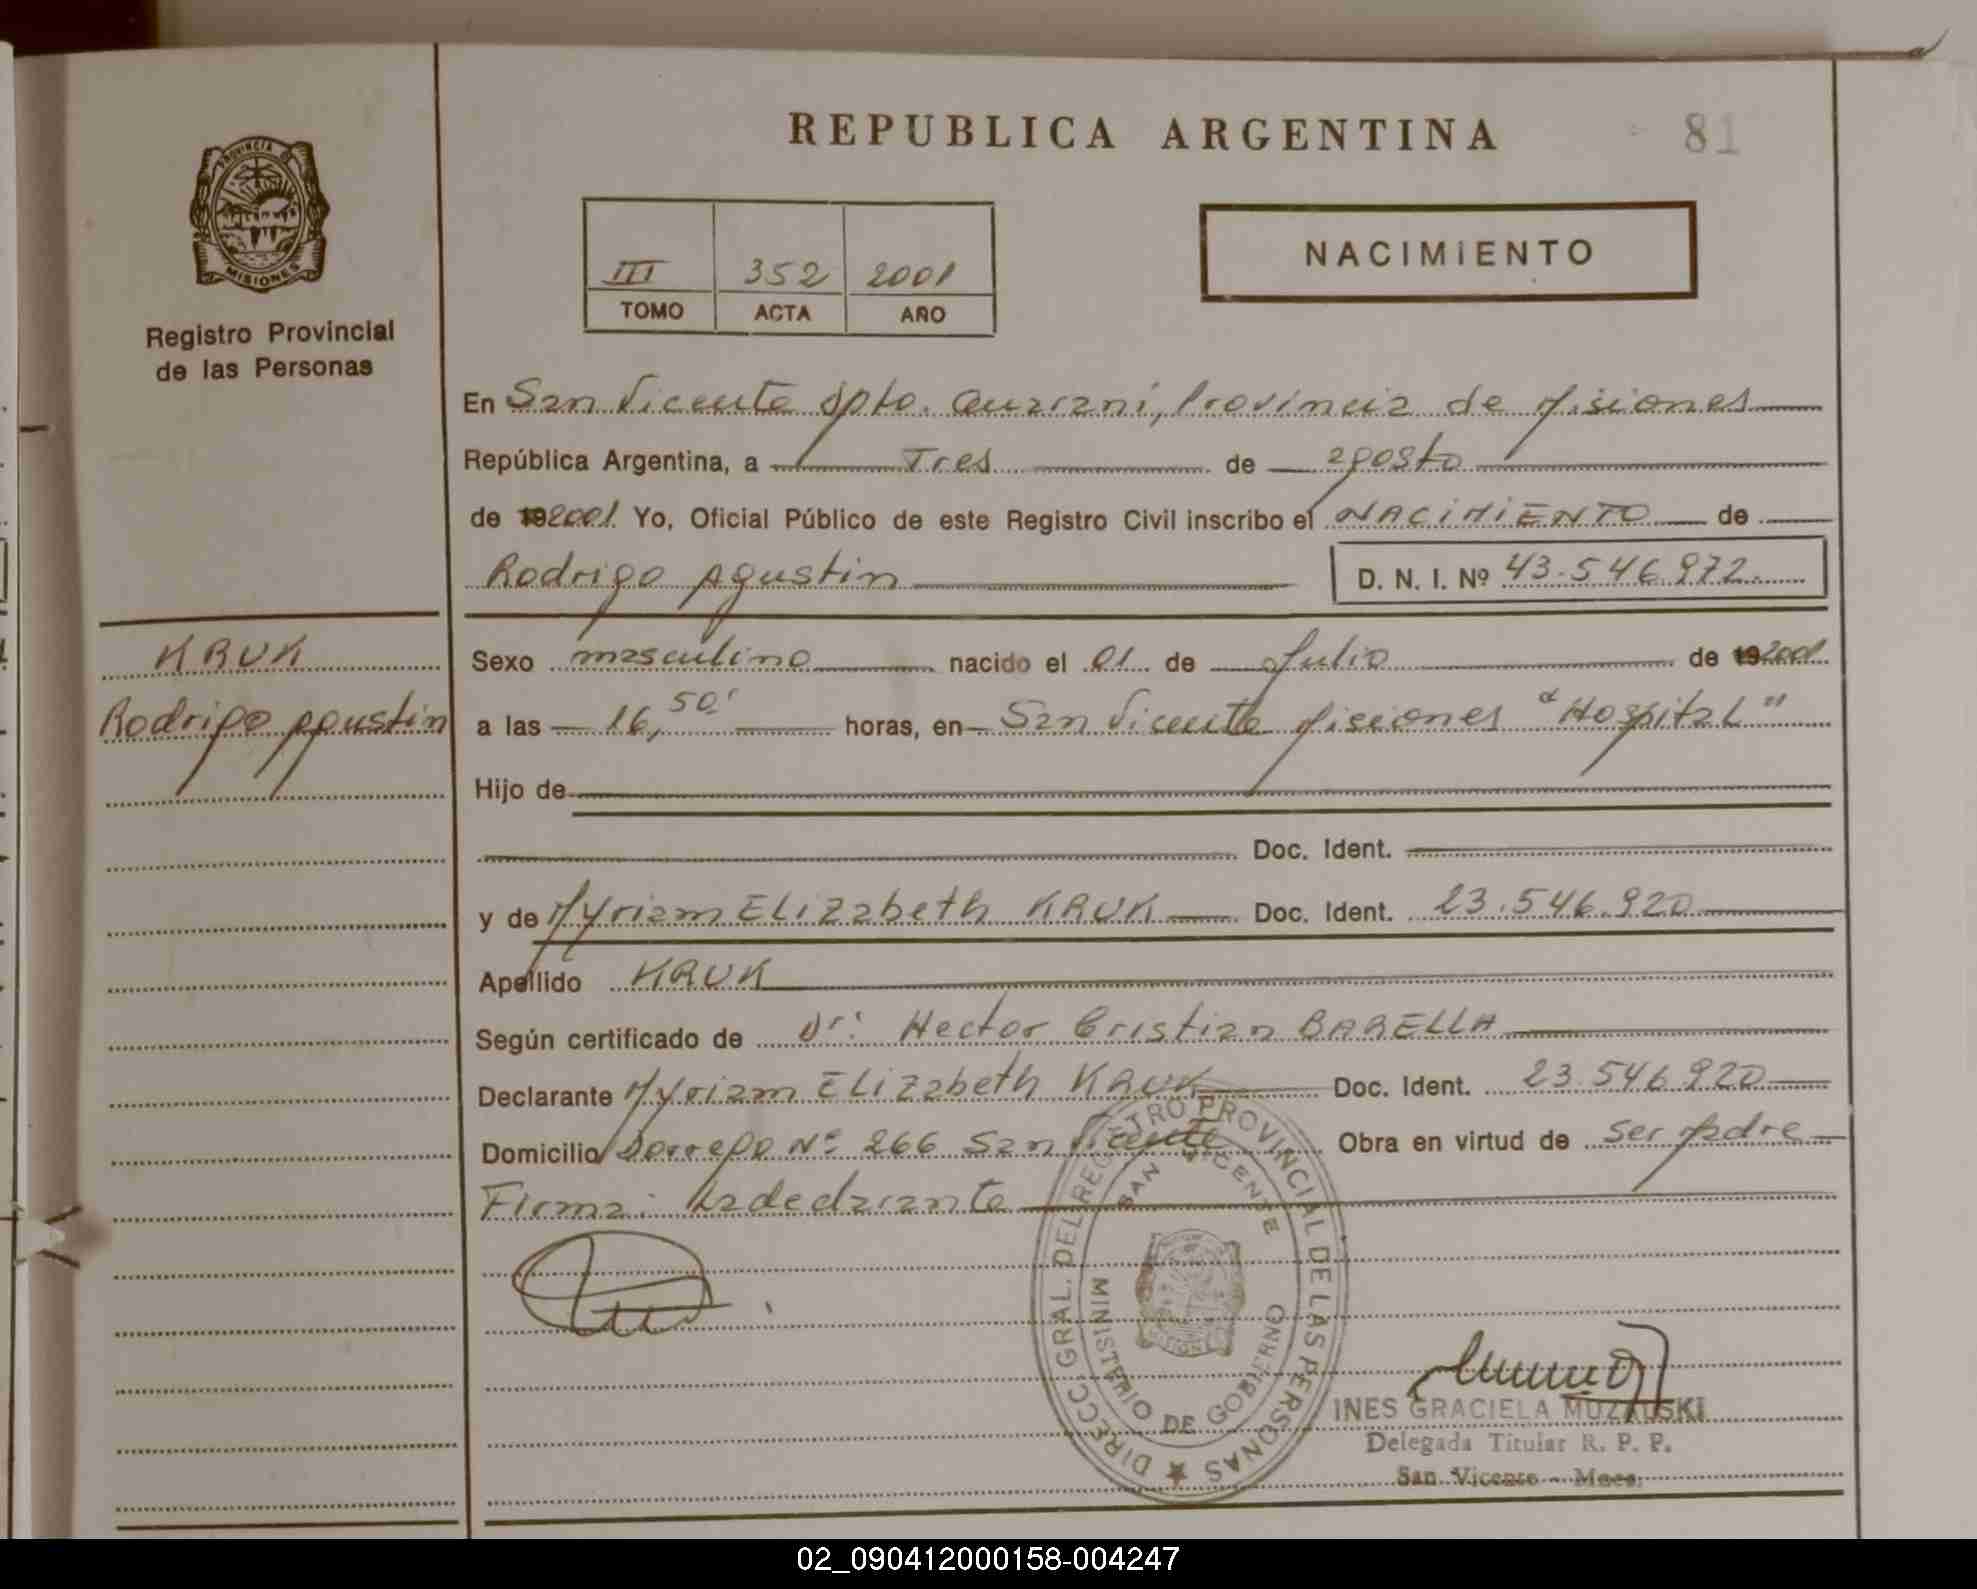 REPUBLICA ARGENTINA
81
PROVINCIA D
MISIONES
Registro Provincial
de las Personas
III 352 2001
TOMO ACTA AÑO
NACIMIENTO
En San Vicente Dpto. Guarani, Provincia de Misiones
República Argentina, a Tres de agosto
de 192001. Yo, Oficial Público de este Registro Civil inscribo el NACIMIENTO de
Rodrigo Agustin D. N. I. Nº 43.546.972
KRUK
Rodrigo Agustin
Sexo masculino nacido el 01 de Julio de 192001
a las 16,50' horas, en San Vicente Misiones "Hospital"
Hijo de
Doc. Ident.
y de Myriam Elizabeth KRUK Doc. Ident. 23.546.920
Apellido KRUK
Según certificado de Dr: Hector Cristian BARELLA
Declarante Myriam Elizabeth KRUK Doc. Ident. 23.546.920
Domicilio Dorrego Nº 266 San Vicente Obra en virtud de ser Madre
Firma: La declarante
DIRECC GRAL. DEL REGISTRO PROVINCIAL DE LAS PERSONAS
SAN VICENTE
MINISTERIO DE GOBIERNO
INES GRACIELA MUZAUSKI
Delegada Titular R. P. P.
San Vicente - Mnes.
02_090412000158-004247